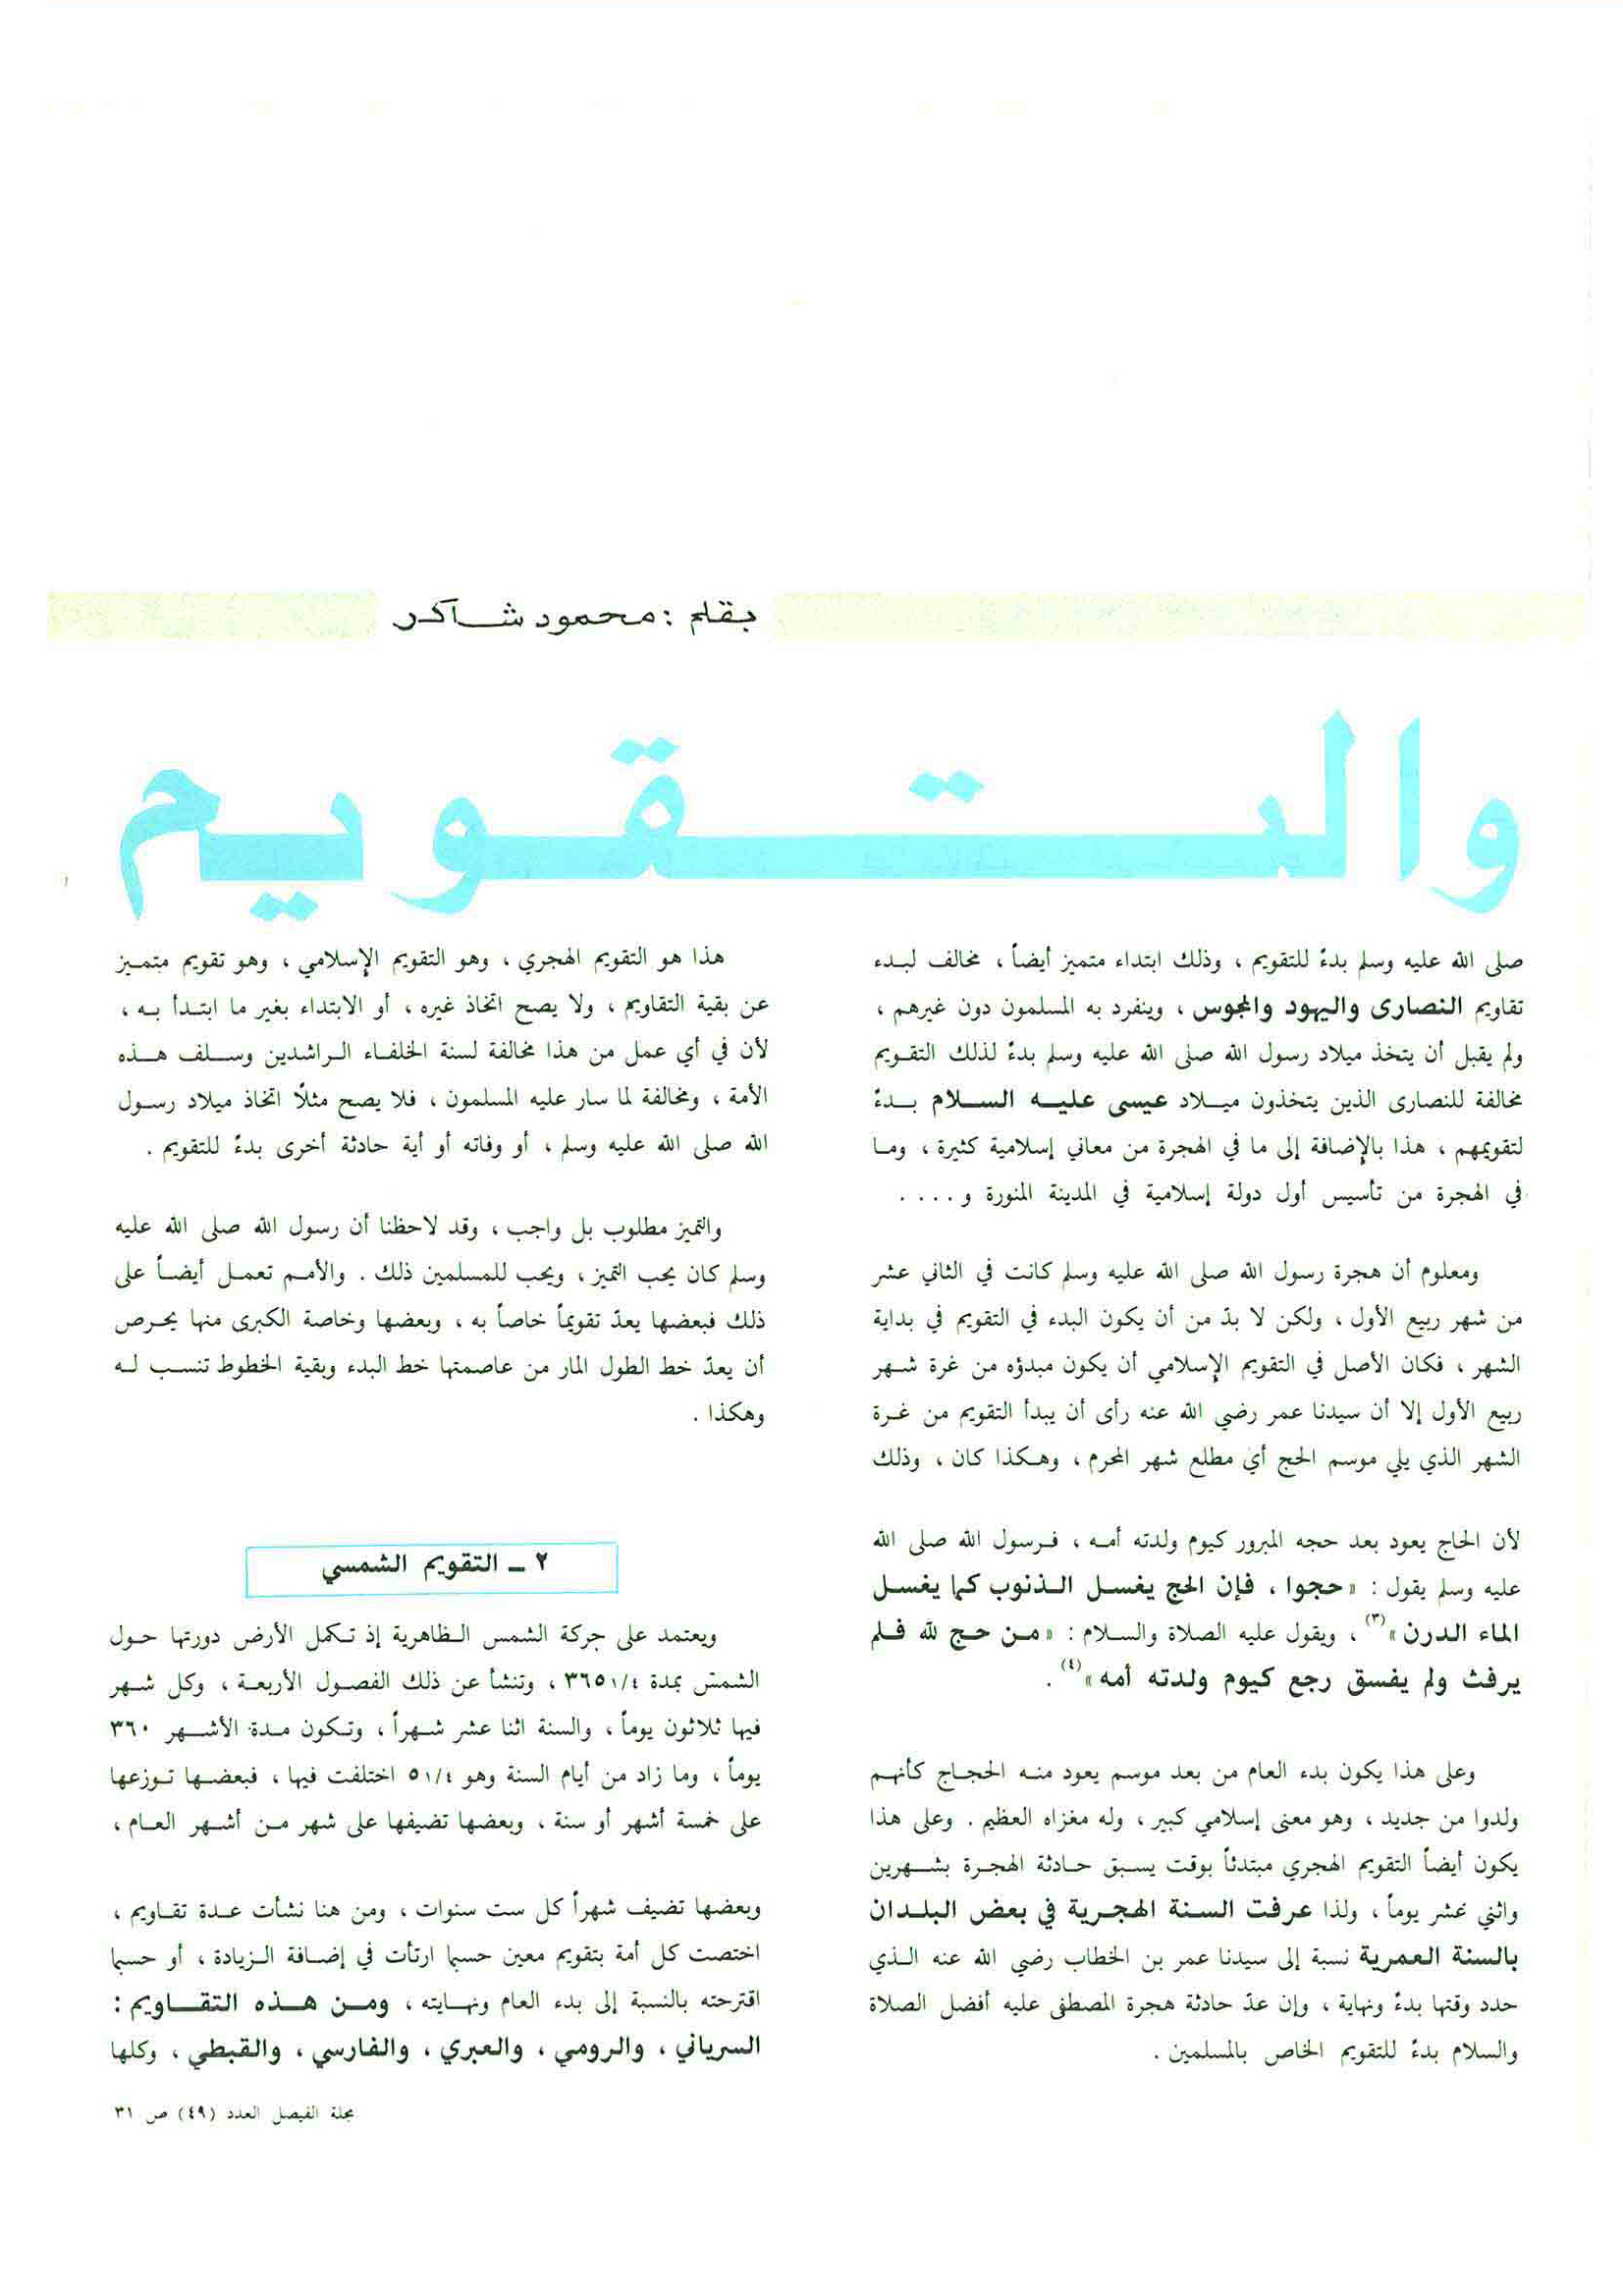 بقلم : محمود شاكر
والتقويم
صلى الله عليه وسلم بدءً للتقويم ، وذلك ابتداء متميز أيضاً ، مخالف لبدء
تقاويم النصارى واليهود والمجوس ، وينفرد به المسلمون دون غيرهم ،
ولم يقبل أن يتخذ ميلاد رسول الله صلى الله عليه وسلم بدءً لذلك التقويم
مخالفة للنصارى الذين يتخذون ميلاد عيسى عليه السلام بدءً
لتقويمهم ، هذا بالإضافة إلى ما في الهجرة من معاني إسلامية كثيرة ، وما
في الهجرة من تأسيس أول دولة إسلامية في المدينة المنورة و . . . .
ومعلوم أن هجرة رسول الله صلى الله عليه وسلم كانت في الثاني عشر
من شهر ربيع الأول ، ولكن لا بدّ من أن يكون البدء في التقويم في بداية
الشهر ، فكان الأصل في التقويم الإسلامي أن يكون مبدؤه من غرة شهر
ربيع الأول إلا أن سيدنا عمر رضي الله عنه رأى أن يبدأ التقويم من غرة
الشهر الذي يلي موسم الحج أي مطلع شهر المحرم ، وهكذا كان ، وذلك
لأن الحاج يعود بعد حجه المبرور كيوم ولدته أمه ، فرسول الله صلى الله
عليه وسلم يقول : «حجوا ، فإن الحج يغسل الذنوب كما يغسل
الماء الدرن»(٣) ، ويقول عليه الصلاة والسلام : «من حج لله فلم
يرفث ولم يفسق رجع كيوم ولدته أمه»(٤) .
وعلى هذا يكون بدء العام من بعد موسم يعود منه الحجاج كأنهم
ولدوا من جديد ، وهو معنى إسلامي كبير ، وله مغزاه العظيم . وعلى هذا
يكون أيضاً التقويم الهجري مبتدئاً بوقت يسبق حادثة الهجرة بشهرين
واثني عشر يوماً ، ولذا عرفت السنة الهجرية في بعض البلدان
بالسنة العمرية نسبة إلى سيدنا عمر بن الخطاب رضي الله عنه الذي
حدد وقتها بدءً ونهاية ، وإن عدّ حادثة هجرة المصطفى عليه أفضل الصلاة
والسلام بدءً للتقويم الخاص بالمسلمين .
هذا هو التقويم الهجري ، وهو التقويم الإسلامي ، وهو تقويم متميز
عن بقية التقاويم ، ولا يصح اتخاذ غيره ، أو الابتداء بغير ما ابتدأ به ،
لأن في أي عمل من هذا مخالفة لسنة الخلفاء الراشدين وسلف هذه
الأمة ، ومخالفة لما سار عليه المسلمون ، فلا يصح مثلاً اتخاذ ميلاد رسول
الله صلى الله عليه وسلم ، أو وفاته أو أية حادثة أخرى بدءً للتقويم .
والتميز مطلوب بل واجب ، وقد لاحظنا أن رسول الله صلى الله عليه
وسلم كان يحب التميز ، ويحب للمسلمين ذلك . والأمم تعمل أيضاً على
ذلك فبعضها يعدّ تقويماً خاصاً به ، وبعضها وخاصة الكبرى منها يحرص
أن يعدّ خط الطول المار من عاصمتها خط البدء وبقية الخطوط تنسب له
وهكذا .
٢ ـ التقويم الشمسي
ويعتمد على جركة الشمس الظاهرية إذ تكمل الأرض دورتها حول
الشمس بمدة ٣٦٥١/٤ ، وتنشأ عن ذلك الفصول الأربعة ، وكل شهر
فيها ثلاثون يوماً ، والسنة اثنا عشر شهراً ، وتكون مدة الأشهر ٣٦٠
يوماً ، وما زاد من أيام السنة وهو ٥١/٤ اختلفت فيها ، فبعضها توزعها
على خمسة أشهر أو سنة ، وبعضها تضيفها على شهر من أشهر العام ،
وبعضها تضيف شهراً كل ست سنوات ، ومن هنا نشأت عدة تقاويم ،
اختصت كل أمة بتقويم معين حسبما ارتأت في إضافة الزيادة ، أو حسبما
اقترحته بالنسبة إلى بدء العام ونهايته ، ومن هذه التقاويم :
السرياني ، والرومي ، والعبري ، والفارسي ، والقبطي ، وكلها
مجلة الفيصل العدد (٤٩) ص ٣١